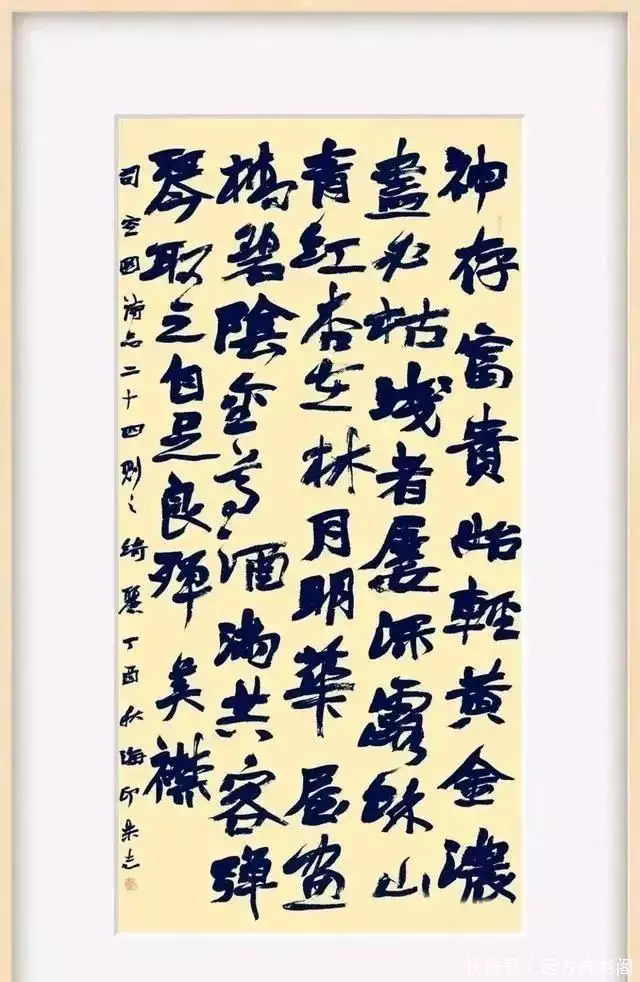 神存富貴始輕黄金濃
盡必枯淺者屢深露餘山
青紅杏在林月明華屋畫
橋碧陰金尊酒滿共客彈
琴取之自足良殫美襟
司空圖詩品二十四則之綺麗丁酉秋海印